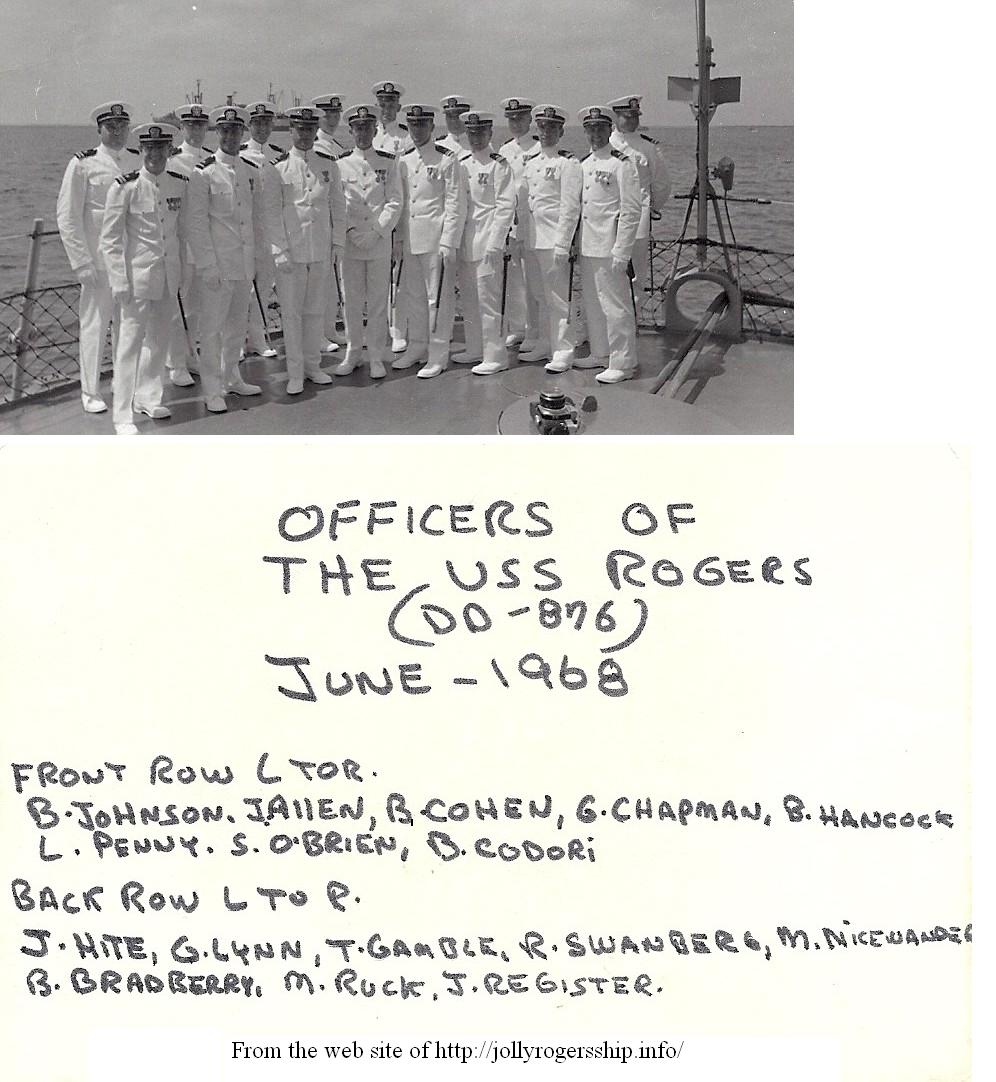 OFFICERS OF
THE USS ROGERS
(DD-876)
JUNE - 1968
FRONT ROW L TOR.
B. JOHNSON. J. AllEN, B. COHEN, G. CHAPMAN, B. HANCOCK
L. PENNY. S. O'BRIEN, B. CODORi
BACK ROW L TO R.
J. HITE, G. LYNN, T. GAMBLE, R. SWANBERG, M. NICEWANDER
B. BRADBERRY, M. RUCK, J. REGISTER.
From the web site of http://jollyrogersship.info/